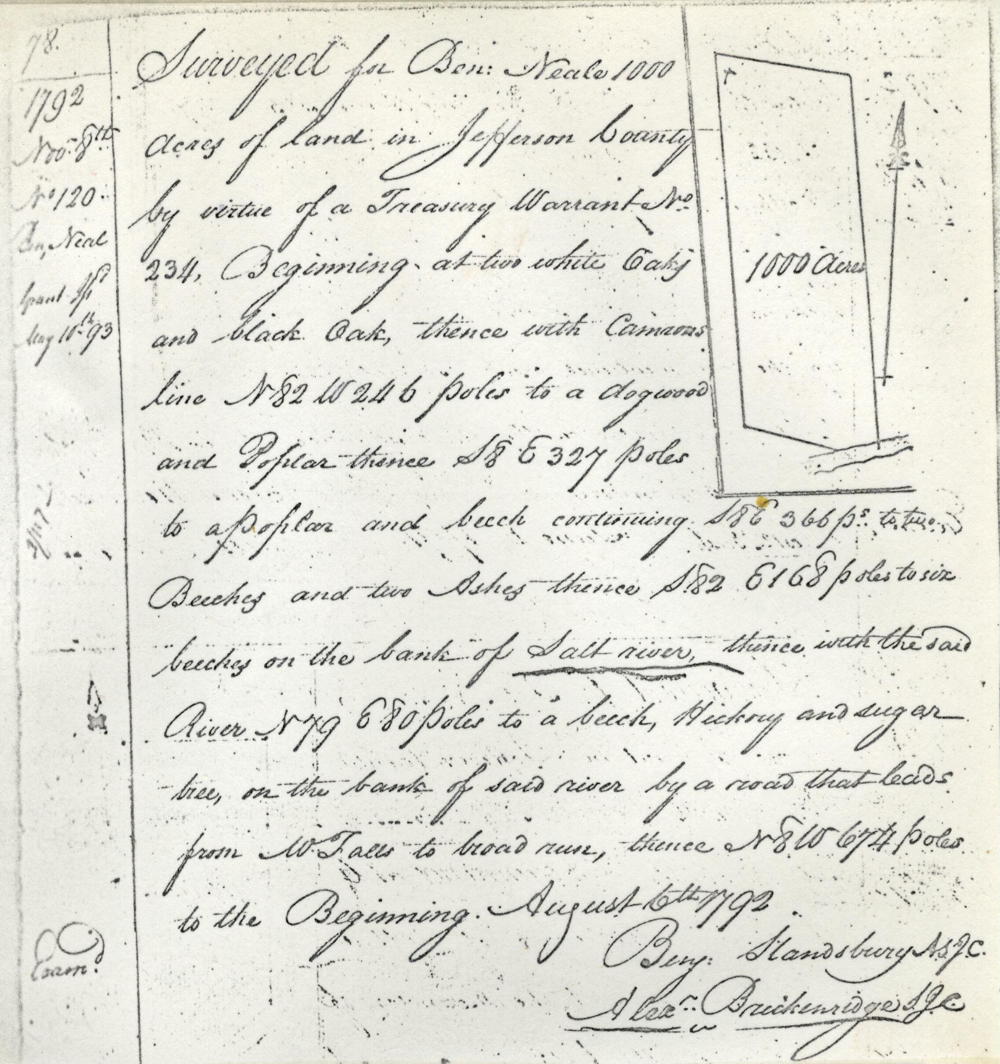 78.
1792
Nov. 8th
No 120
Ben, Neal
Grant Isd
May 10th 93
Exam.d
Surveyed for Ben: Neale 1000
Acres of land in Jefferson County
by virtue of a Treasury Warrant No
234, Beginning at two white Oaks
and black Oak, thence with Camrons
line N 82 W 246 poles to a dogwood
and Poplar thence S 8 E 327 poles
to a poplar and beech continuing S 8 E 366 ps. to two
Beeches and two Ashes thence S. 82 E 168 poles to six
beeches on the bank of Salt river, thence with the said
River N 79 E 80 poles to a beech, Hickory and sugar
tree, on the bank of said river by a road that leads
from McFalls to broad run, thence N 8 W 674 poles
to the Beginning. August 6th 1792
Benj: Standsbury A.S.J.C.
Alexr. Breckenridge S.J.C
1000 Acres